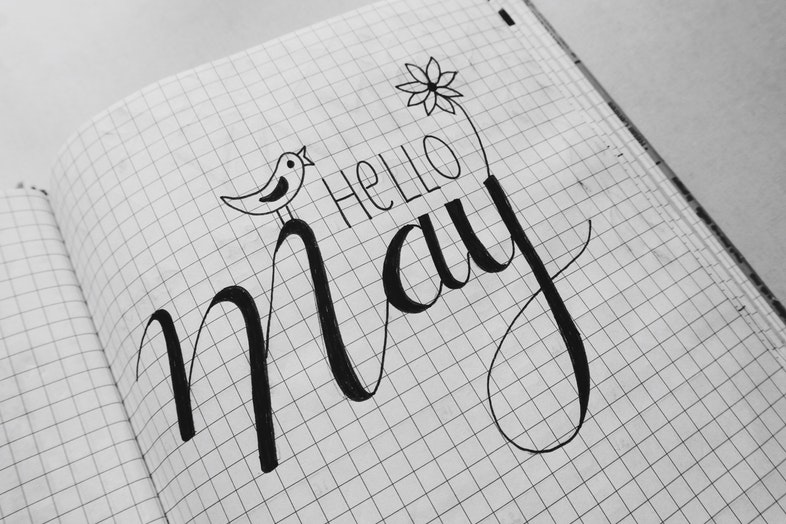 HeLLO
May